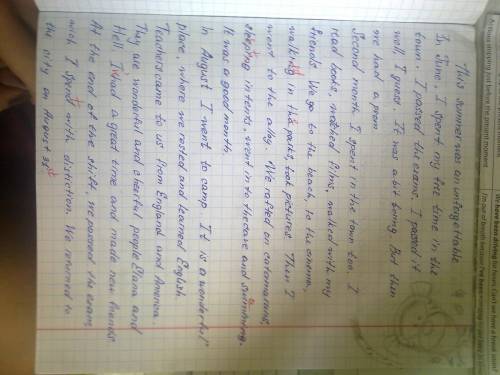 This summer was an unforgettable
In June, I spent my free time in the
town. I passed the exams. I passed it
well, I guess. It was a bit boring. But then
we had a prom
Second month I spent in the town too. I
read books, watched films, walked with my
friends. We go to the beach, to the cinema,
walking in the parks, took pictures. Then I
went to the alloy. We rafted on catamarans,
sleeping in tents, went in to the cave and
It was a good month
In August I went to camp. It is a wonderful
place, where we rested and learned English.
Teachers came to us from England and America.
They are wonderful and cheerful people Elana and
Hell I had a great time and made new friends
At the end of the shift we passed the exam
wich I spend with distiction. We returned to
the city on August 31st